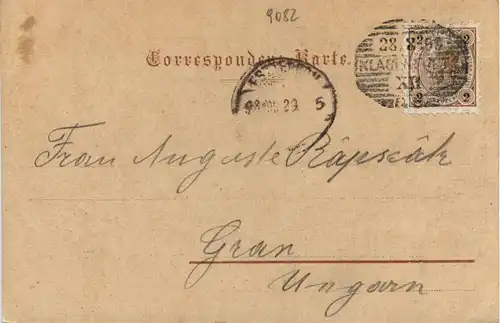 9082
Correspondenz-Karte.
28.8.98
2 2
98 AUG 29
5
Frau Auguste Rápscák
Gran
Ungarn